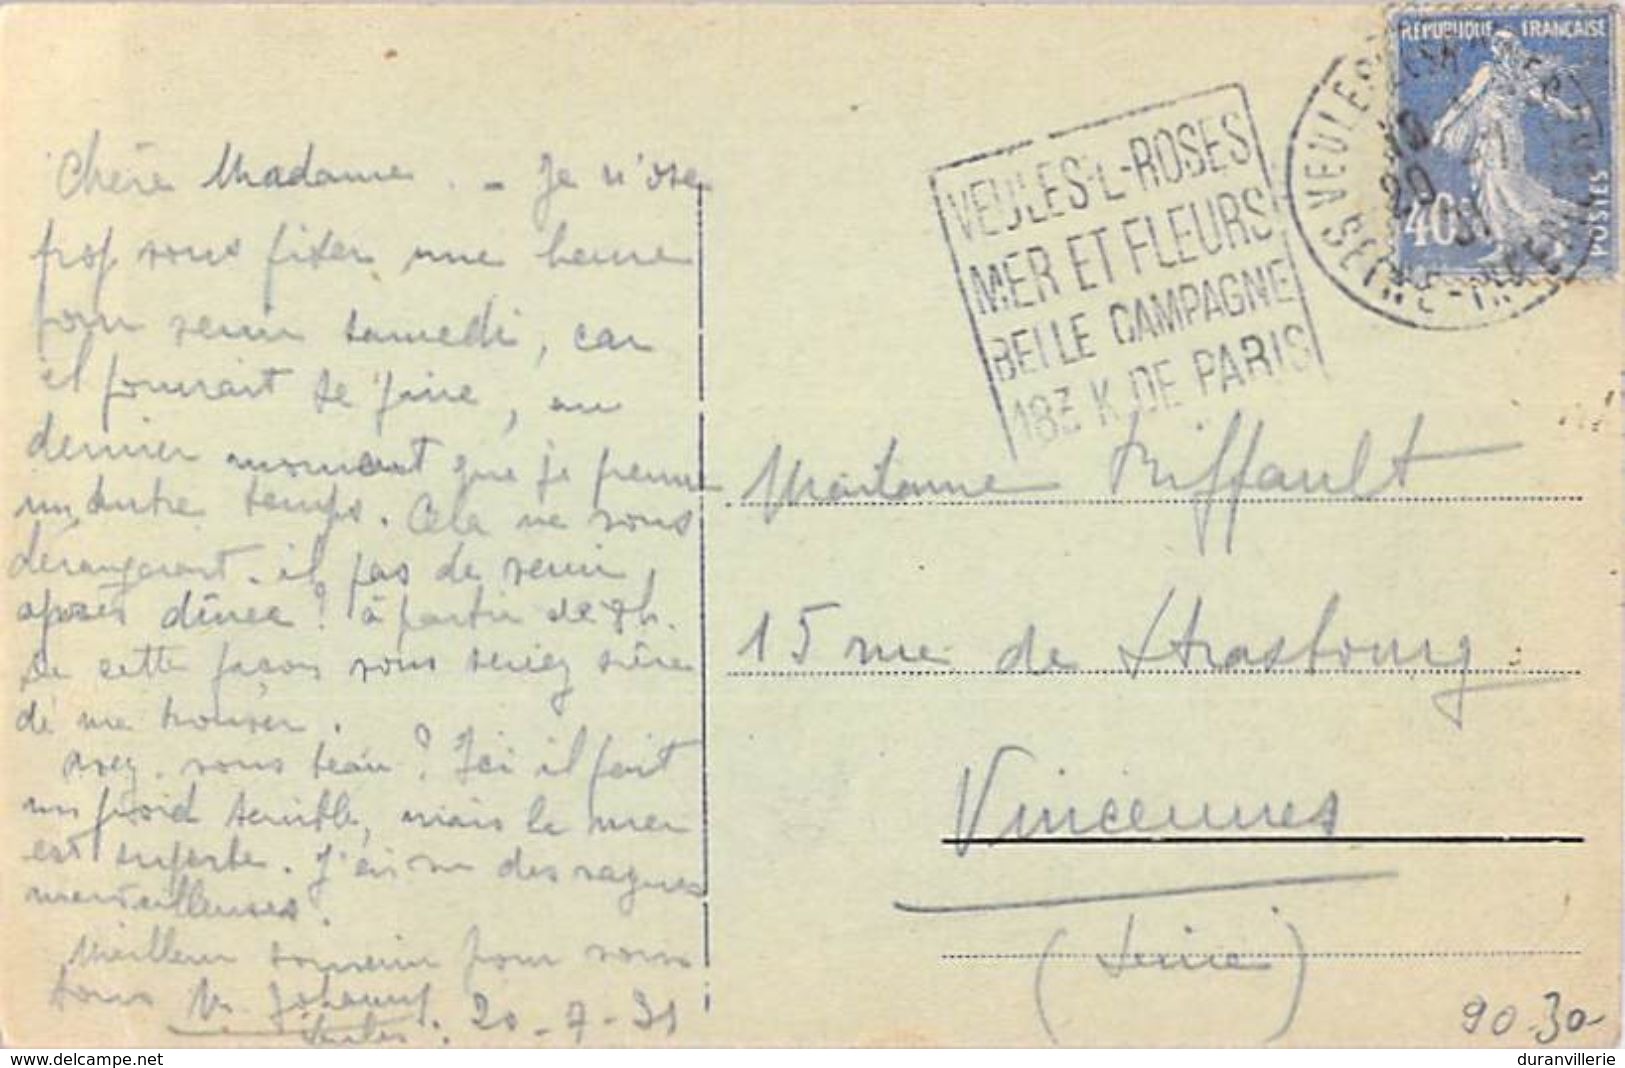 Chère Madame. - Je n'ose
trop vous fixer une heure
pour venir samedi, car
il pourrait se faire, au
dernier moment que je prenne
un autre temps. Cela ne vous
dérangerait-il pas de venir
après dîner ? à partir de 8h.
De cette façon vous seriez sûre
de me trouver.
Avez-vous beau ? Ici il fait
un froid terrible, mais la mer
est superbe. J'ai vu des vagues
merveilleuses.
Meilleur souvenir pour vous
tous
Veules. 20-7-31
VEULES-L-ROSES
MER ET FLEURS
BELLE CAMPAGNE
183 K DE PARIS
REPUBLIQUE FRANÇAISE
40c
POSTES
VEULES
SEINE-INF
20
31
Madame Riffault
15 rue de Strasbourg
Vincennes
(Seine)
90-30-
delcampe.net
duranvillerie